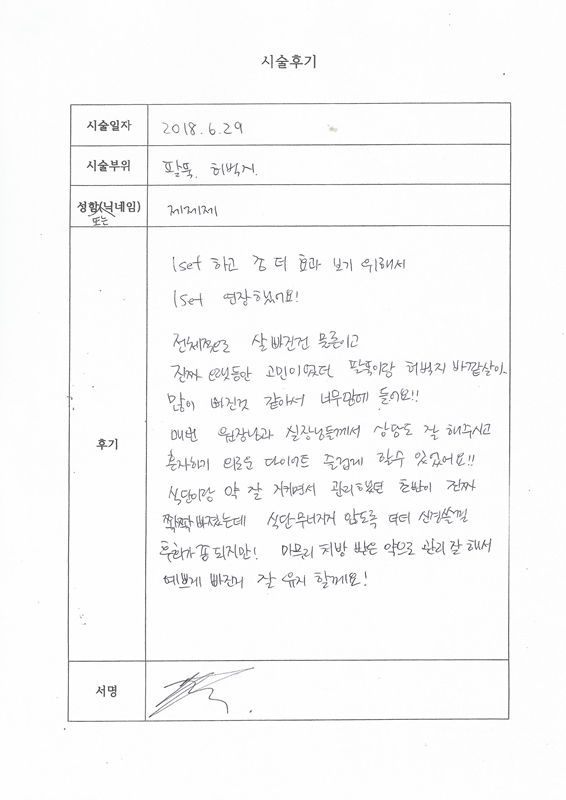 시술후기
시술일자 2018.6.29
시술부위 팔뚝. 허벅지.
성함(닉네임) 제제제
또는
후기
1set 하고 좀 더 효과 보기 위해서
1set 연장했어요!
전체적으로 살 빠진건 물론이고
진짜 오랫동안 고민이였던 팔뚝이랑 허벅지 바깥살이
많이 빠진것 같아서 너무맘에 들어요!!
매번 원장님과 실장님들께서 상담도 잘 해주시고
혼자하기 외로운 다이어트 즐겁게 할수 있었어요!!
식단이랑 약 잘 지켜면서 관리했던 초반이 진짜
쫙쫙빠졌는데 식단무너지지 않도록 더더 신경쓸껄
후회가 좀 되지만! 마무리 처방 받은 약으로 관리 잘 해서
예쁘게 빠진거 잘 유지 할께요!
서명